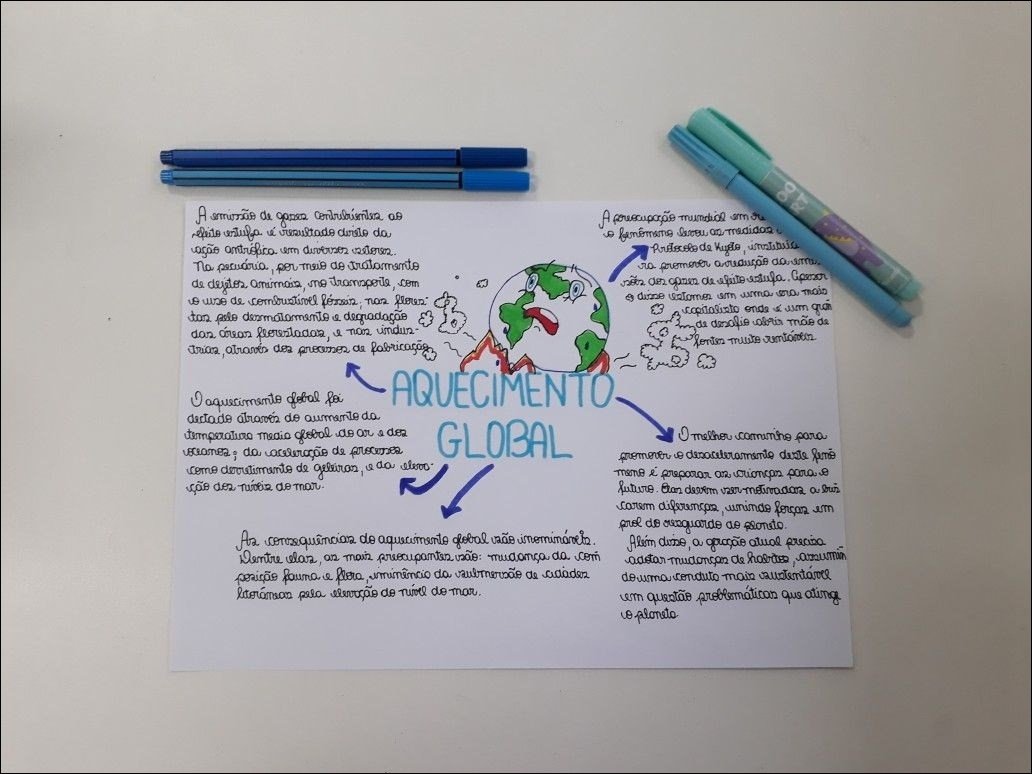 A emissão de gases contribuintes ao
efeito estufa é resultado direto da
ação antrófica em diversos setores.
Na pecuária, por meio do tratamento
de dejetos animais, no transporte, com
o uso de combustível fósseis, nas flores-
tas pelo desmatamento e degradação
das áreas florestadas, e nas indus-
trias, através dos processos de fabricação.
A preocupação mundial em
o fenômeno levou as medidas
Protocolo de Kyoto,
ra promover a redução da
sões dos gases de efeito estufa. Apesar
disso estamos em uma era mais
capitalista onde é um gran
de desafio abrir mão de
fontes muito rentáveis
AQUECIMENTO
GLOBAL
O aquecimento global foi
dectado através do aumento da
temperatura media global do ar e dos
oceanos; da aceleração de processos
como derretimento de geleiras, e da eleva-
ção dos níveis do mar.
As consequências do aquecimento global são inomináveis.
Dentre elas, as mais preocupantes são: mudança da com
posição fauna e flora, iminência da submersão de cidades
litorâneas pela elevação do nível do mar.
O melhor caminho para
promover o desaceleramento deste fenô
meno é preparar as crianças para o
futuro. Elas devem ser motivadas a bus
carem diferenças, unindo forças em
prol do resguardo do planeta.
Além disso, a geração atual precisa
adotar mudanças de habitos, assumin
do uma conduta mais sustentável
em questão problemáticas que atinge
o planeta.